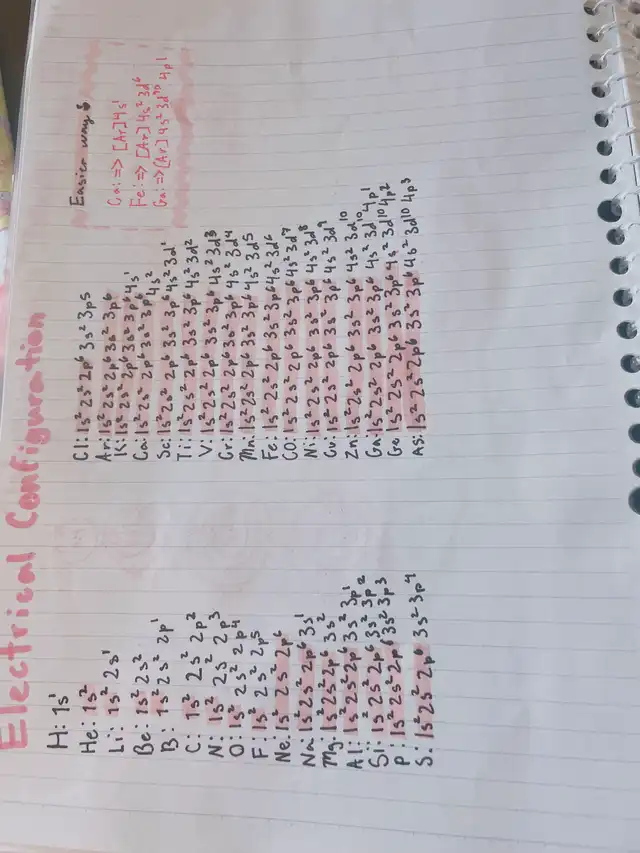 Electrical Configuration
H: 1s¹
He: 1s²
Li: 1s² 2s¹
Be: 1s² 2s²
B: 1s² 2s² 2p¹
C: 1s² 2s² 2p²
N: 1s² 2s² 2p³
O: 1s² 2s² 2p⁴
F: 1s² 2s² 2p⁵
Ne: 1s² 2s² 2p⁶
Na: 1s² 2s² 2p⁶ 3s¹
Mg: 1s² 2s² 2p⁶ 3s²
Al: 1s² 2s² 2p⁶ 3s² 3p¹
Si: 1s² 2s² 2p⁶ 3s² 3p²
P: 1s² 2s² 2p⁶ 3s² 3p³
S: 1s² 2s² 2p⁶ 3s² 3p⁴
Cl: 1s² 2s² 2p⁶ 3s² 3p5
Ar: 1s² 2s² 2p⁶ 3p² 3p⁶
K: 1s² 2s² 2p⁶ 3s² 3p⁶ 4s¹
Ca: 1s² 2s² 2p⁶ 3s² 3p⁶ 4s²
Sc: 1s² 2s² 2p⁶ 3s² 3p⁶ 4s² 3d¹
Ti: 1s² 2s² 2p⁶ 3s² 3p⁶ 4s² 3d²
V: 1s² 2s² 2p⁶ 3s² 3p⁶ 4s² 3d³
Cr: 1s² 2s² 2p⁶ 3s² 3p⁶ 4s² 3d⁴
Mn: 1s² 2s² 2p⁶ 3s² 3p⁶ 4s² 3d⁵
Fe: 1s² 2s² 2p⁶ 3s² 3p⁶ 4s² 3d⁶
CO: 1s² 2s² 2p⁶ 3s² 3p⁶ 4s² 3d⁷
Ni: 1s² 2s² 2p⁶ 3s² 3p⁶ 4s² 3d⁸
Cu: 1s² 2s² 2p⁶ 3s² 3p⁶ 4s² 3d⁹
Zn: 1s² 2s² 2p⁶ 3s² 3p⁶ 4s² 3d¹⁰
Ga: 1s² 2s² 2p⁶ 3s² 3p⁶ 4s² 3d¹⁰ 4p¹
Ge: 1s² 2s² 2p⁶ 3s² 3p⁶ 4s² 3d¹⁰ 4p²
As: 1s² 2s² 2p⁶ 3s² 3p⁶ 4s² 3d¹⁰ 4p³
Easier way
Ca: => [Ar] 4s¹
Fe: => [Ar] 4s² 3d⁶
Ga: => [Ar] 4s² 3d¹⁰ 4p¹